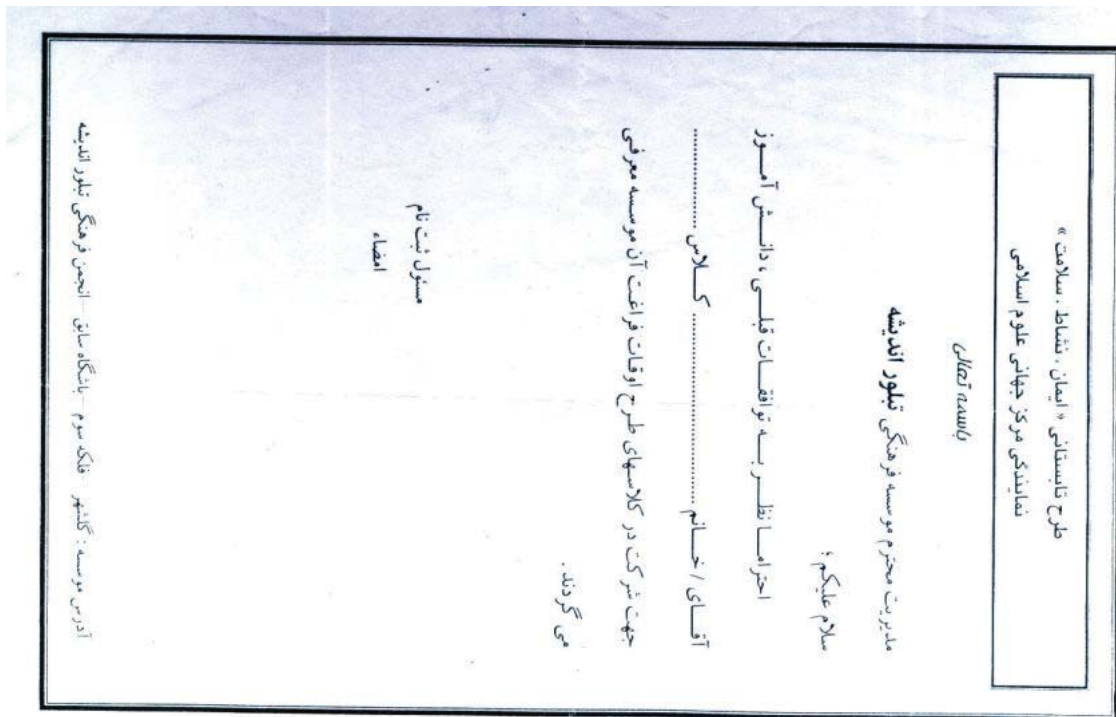 طرح تابستانی « ایمان ، نشاط ، سلامت »
نمایندگی مرکز جهانی علوم اسلامی
باسمه تعالی
مدیریت محترم موسسه فرهنگی تبلور اندیشه
سلام علیکم ؛
احتراما نظر به توافقات قبلی ، دانش آموز
آقای / خانم .............................. کلاس ................
جهت شرکت در کلاسهای طرح اوقات فراغت آن موسسه معرفی
می گردند .
مسئول ثبت نام
امضاء
آدرس موسسه : گلشهر - فلکه سوم - باشگاه سابق - انجمن فرهنگی تبلور اندیشه